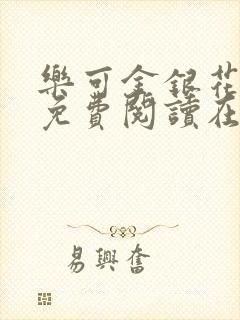 樂可金銀花
免費閱讀在
易興奮